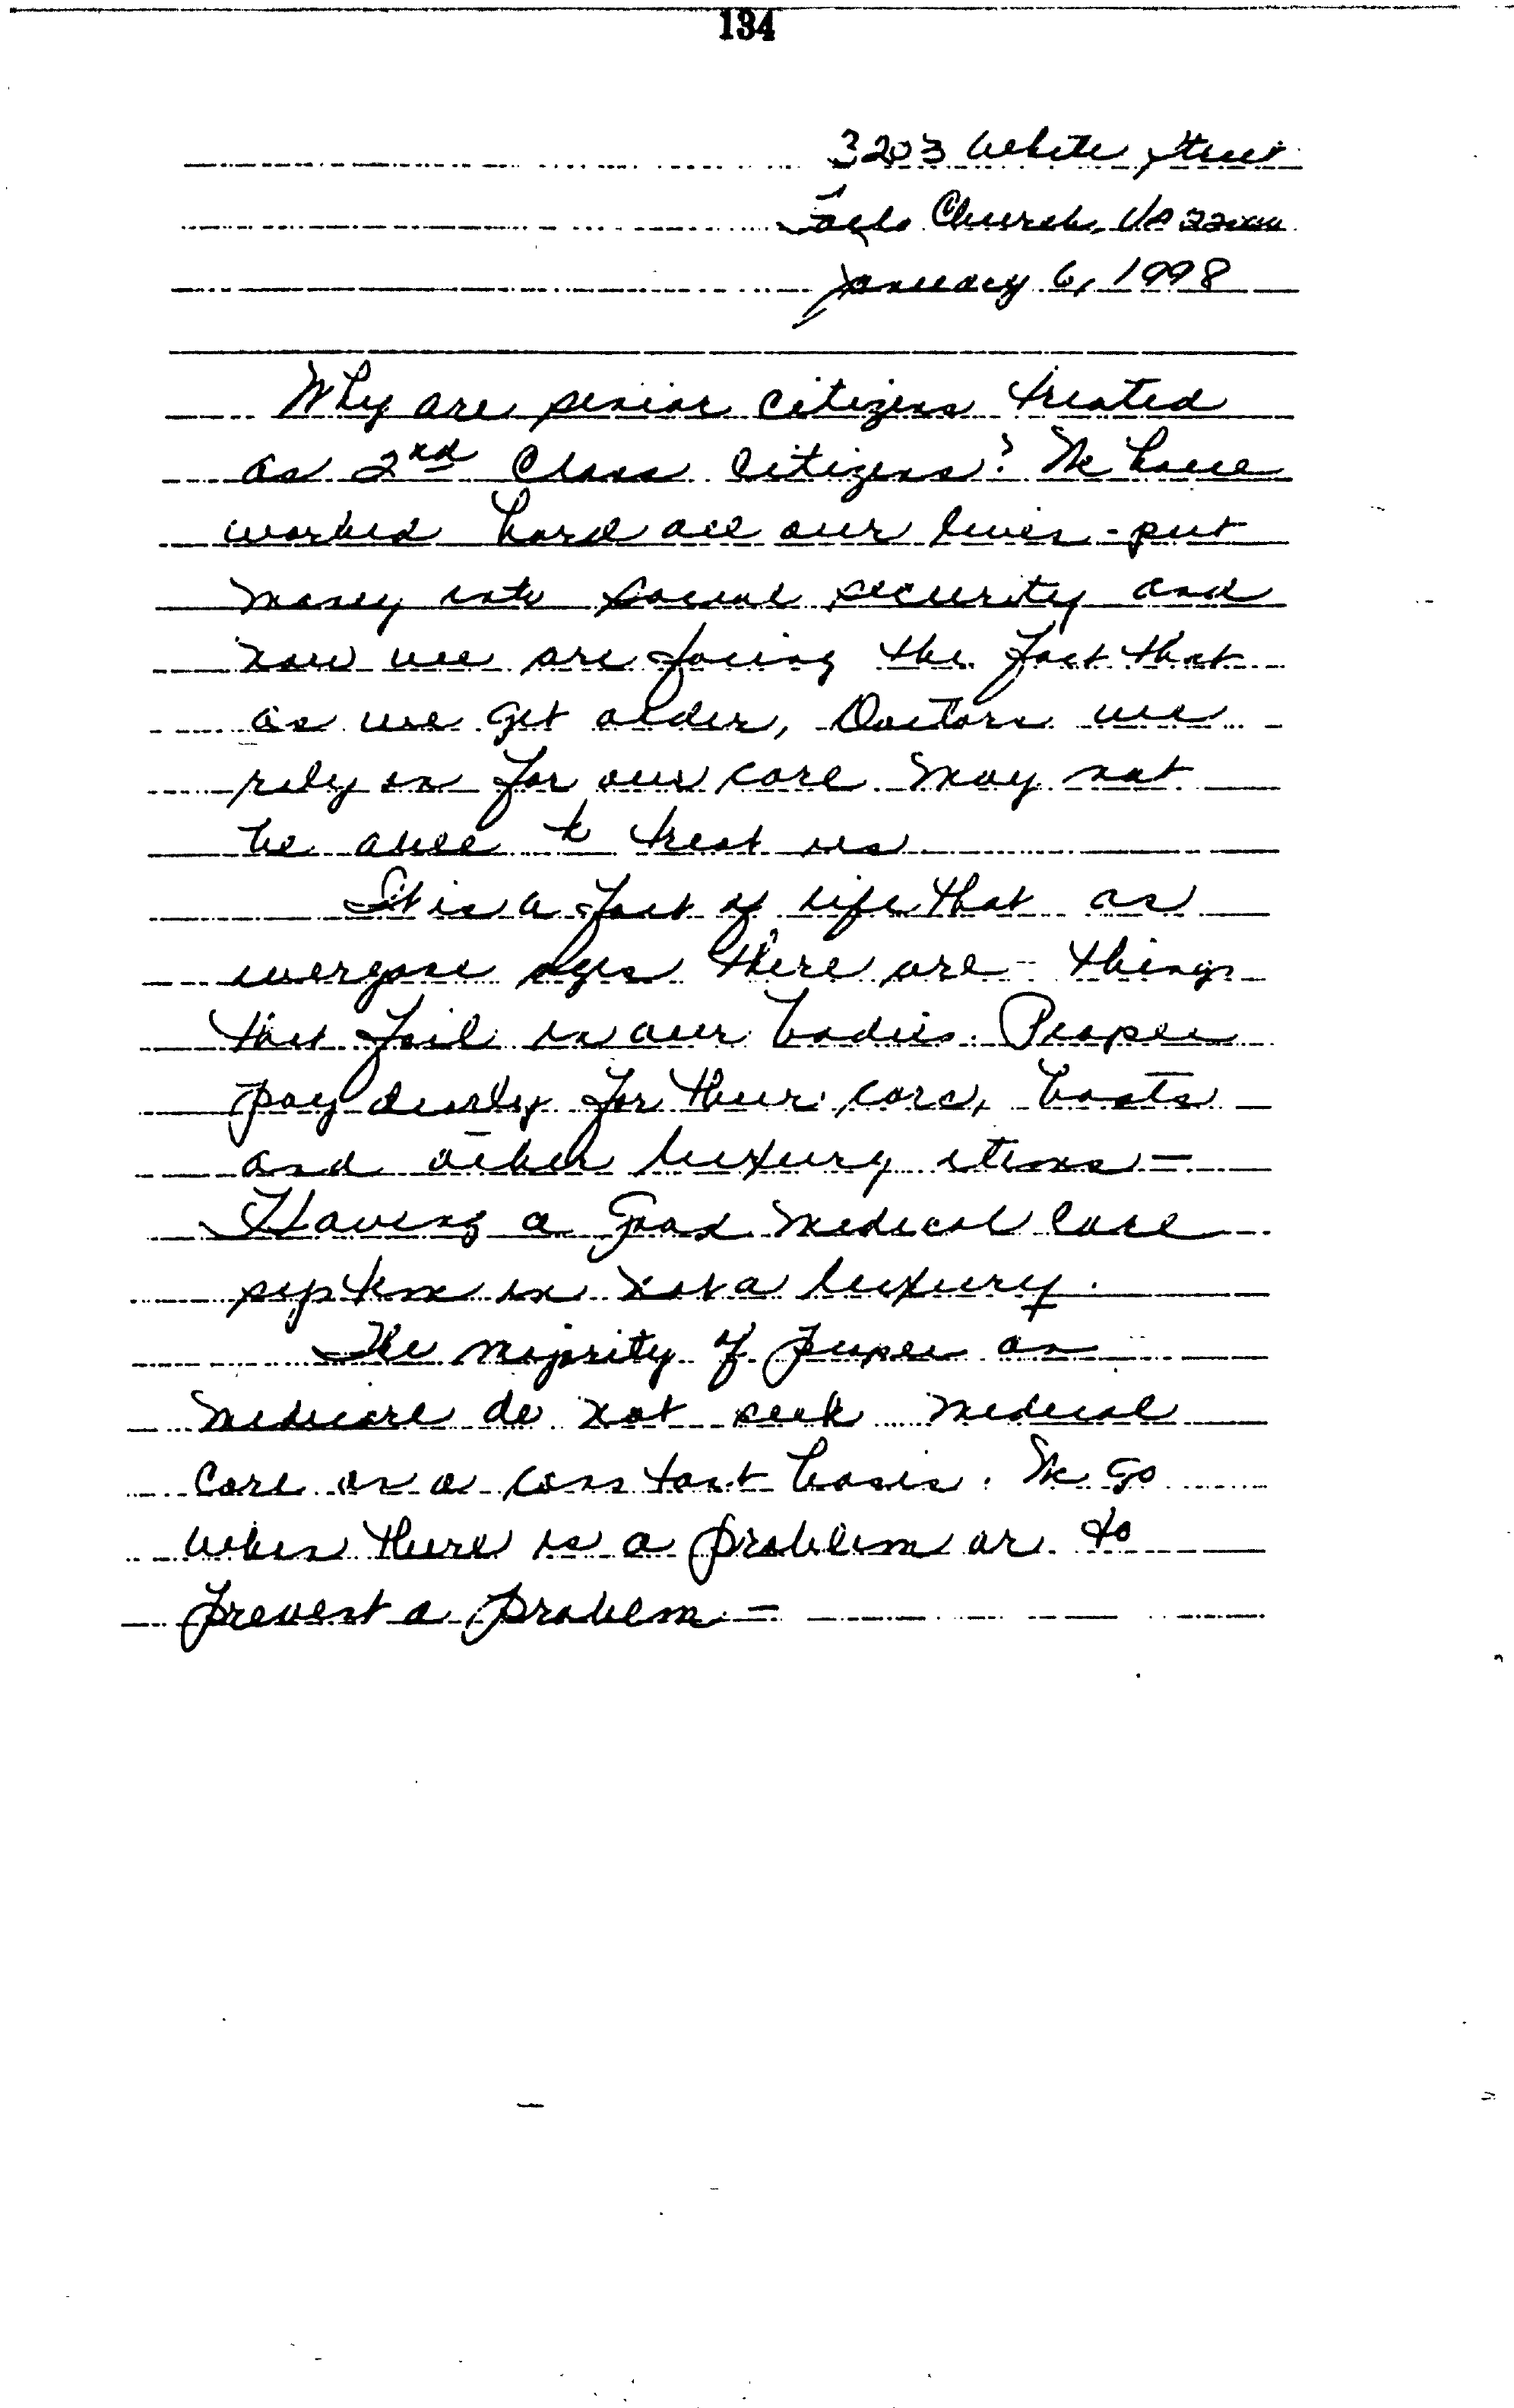 134
3203 White Street
Falls Church, VA
January 6, 1998
Why are senior citizens treated
as 2nd Class Citizens? We have
worked hard all our lives - put
money into social security and
now we are facing the fact that
as we get older, Doctors we
rely on for our care may not
be able to treat us
It is a fact of life that as
everyone ages there are things
that fail in our bodies. People
pay dearly for their cars, boats
and other luxury items -
Having a Good medical care
system is not a luxury.
The majority of people on
medicare do not seek medical
care on a constant basis. We go
when there is a problem or to
prevent a problem -